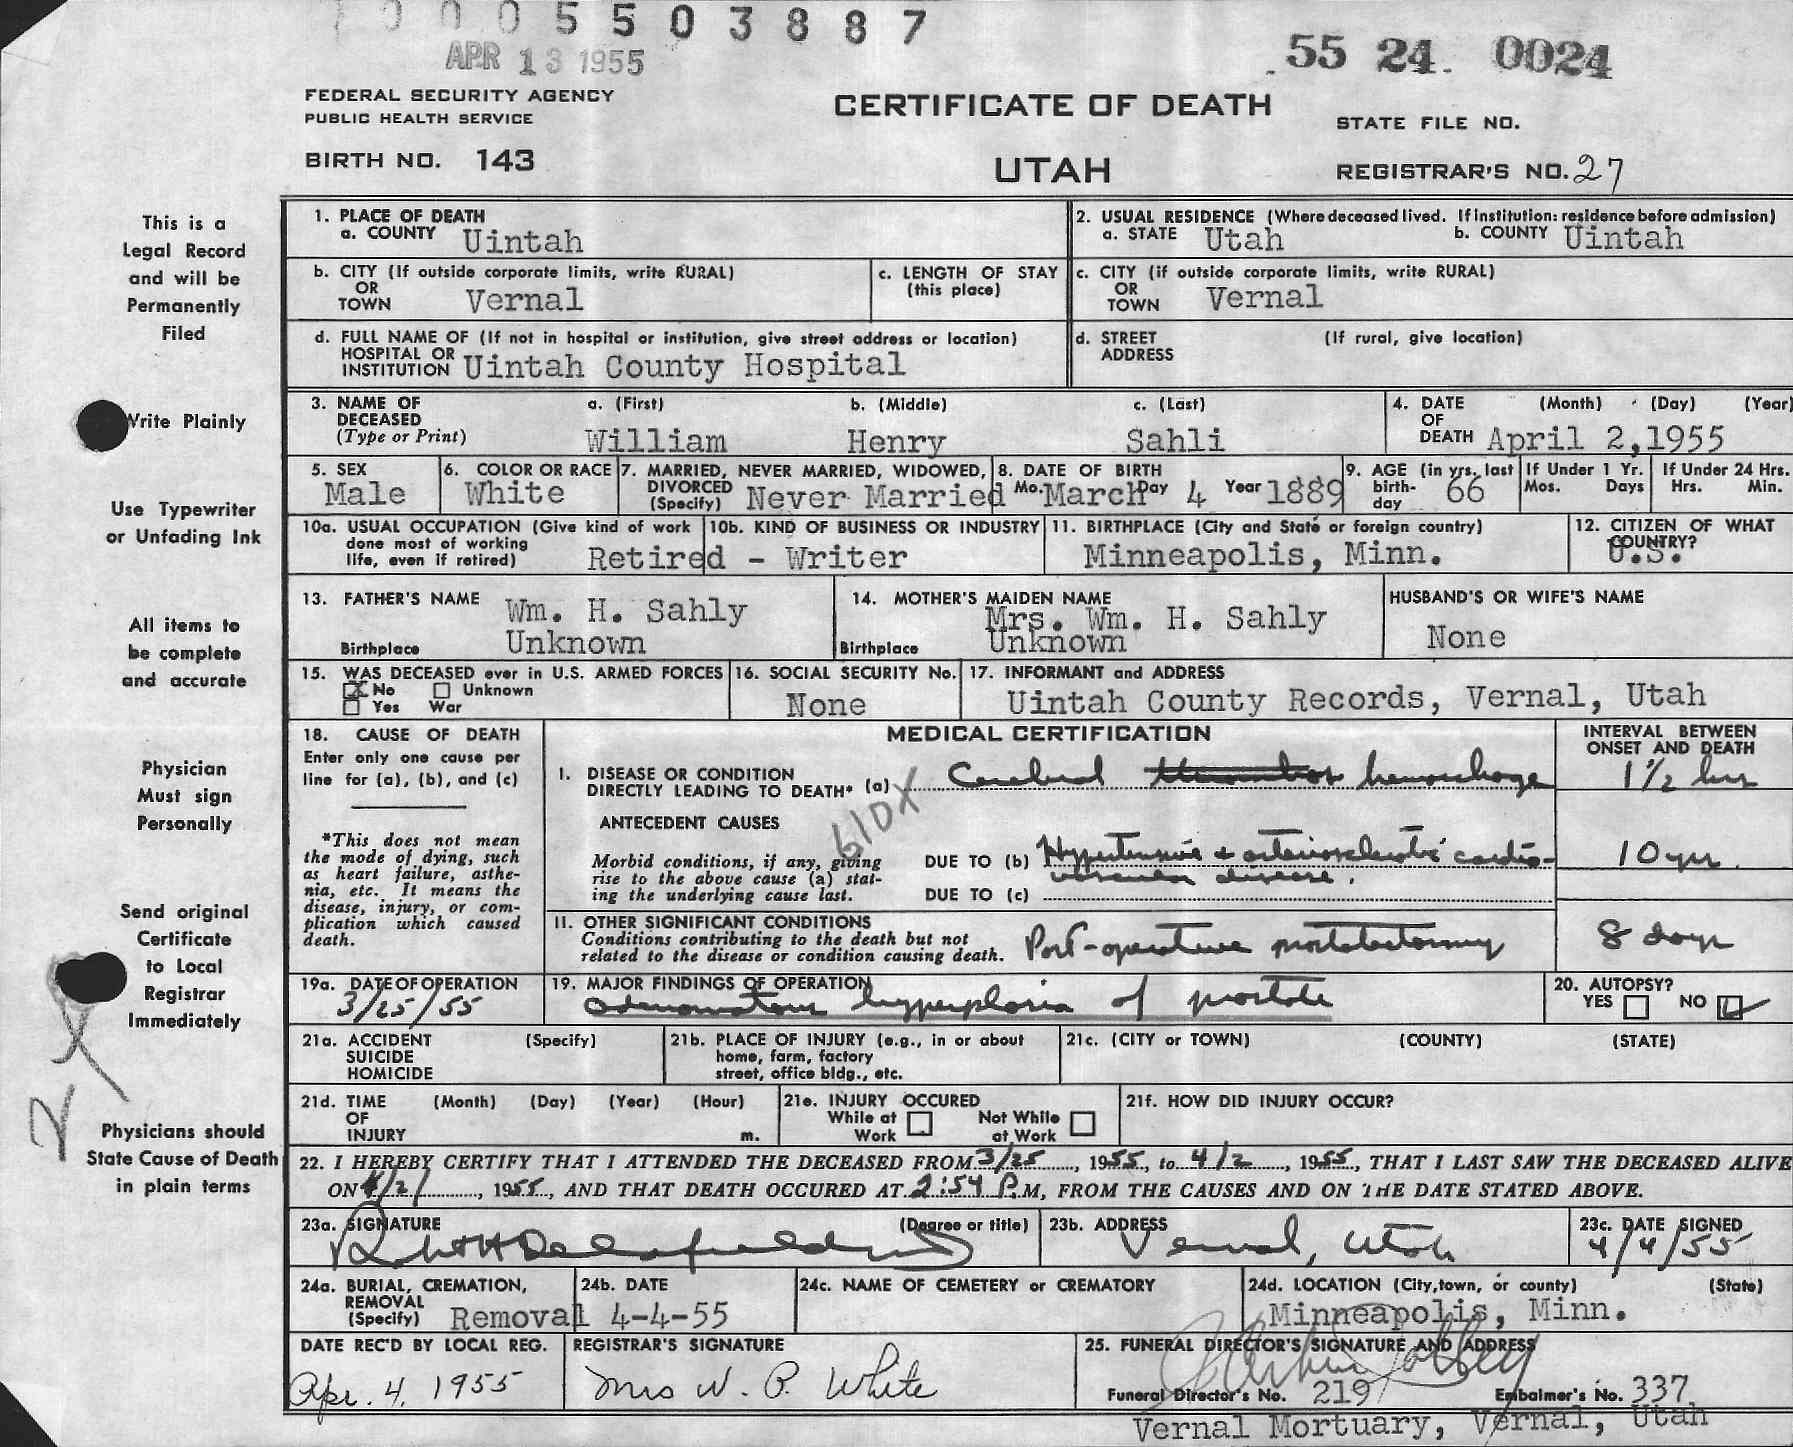 0 0 0 5 5 0 3 8 8 7
APR 13 1955
55 24 0024
FEDERAL SECURITY AGENCY
PUBLIC HEALTH SERVICE
CERTIFICATE OF DEATH
STATE FILE NO.
BIRTH NO. 143
UTAH
REGISTRAR'S NO. 27
This is a
Legal Record
and will be
Permanently
Filed
Write Plainly
Use Typewriter
or Unfading Ink
All items to
be complete
and accurate
Physician
Must sign
Personally
Send original
Certificate
to Local
Registrar
Immediately
Physicians should
State Cause of Death
in plain terms
1. PLACE OF DEATH
a. COUNTY Uintah
2. USUAL RESIDENCE (Where deceased lived. If institution: residence before admission)
a. STATE Utah b. COUNTY Uintah
b. CITY (If outside corporate limits, write RURAL)
OR
TOWN Vernal
c. LENGTH OF STAY
(this place)
c. CITY (if outside corporate limits, write RURAL)
OR
TOWN Vernal
d. FULL NAME OF (If not in hospital or institution, give street address or location)
HOSPITAL OR
INSTITUTION Uintah County Hospital
d. STREET (If rural, give location)
ADDRESS
3. NAME OF a. (First) b. (Middle) c. (Last)
DECEASED
(Type or Print) William Henry Sahli
4. DATE (Month) (Day) (Year)
OF
DEATH April 2, 1955
5. SEX
Male
6. COLOR OR RACE
White
7. MARRIED, NEVER MARRIED, WIDOWED,
DIVORCED
(Specify) Never Married
8. DATE OF BIRTH
Mo. March Day 4 Year 1889
9. AGE (in yrs. last
birth-
day 66
If Under 1 Yr.
Mos. Days
If Under 24 Hrs.
Hrs. Min.
10a. USUAL OCCUPATION (Give kind of work
done most of working
life, even if retired) Retired - Writer
10b. KIND OF BUSINESS OR INDUSTRY
11. BIRTHPLACE (City and State or foreign country)
Minneapolis, Minn.
12. CITIZEN OF WHAT
COUNTRY?
U.S.
13. FATHER'S NAME Wm. H. Sahly
Birthplace Unknown
14. MOTHER'S MAIDEN NAME
Mrs. Wm. H. Sahly
Birthplace Unknown
HUSBAND'S OR WIFE'S NAME
None
15. WAS DECEASED ever in U.S. ARMED FORCES
No Unknown
Yes War
16. SOCIAL SECURITY No.
None
17. INFORMANT and ADDRESS
Uintah County Records, Vernal, Utah
18. CAUSE OF DEATH
Enter only one cause per
line for (a), (b), and (c)
*This does not mean
the mode of dying, such
as heart failure, asthe-
nia, etc. It means the
disease, injury, or com-
plication which caused
death.
MEDICAL CERTIFICATION
INTERVAL BETWEEN
ONSET AND DEATH
I. DISEASE OR CONDITION
DIRECTLY LEADING TO DEATH* (a) Cerebral thrombosis hemorrhage 1 1/2 hrs
610X
ANTECEDENT CAUSES
Morbid conditions, if any, giving
rise to the above cause (a) stat-
ing the underlying cause last.
DUE TO (b) Hypertensive & arteriosclerotic cardio- 10 yr.
vascular disease.
DUE TO (c)
II. OTHER SIGNIFICANT CONDITIONS
Conditions contributing to the death but not
related to the disease or condition causing death. Post-operative prostatectomy 8 days
19a. DATE OF OPERATION
3/25/55
19. MAJOR FINDINGS OF OPERATION
adenomatous hyperplasia of prostate
20. AUTOPSY?
YES NO
21a. ACCIDENT (Specify)
SUICIDE
HOMICIDE
21b. PLACE OF INJURY (e.g., in or about
home, farm, factory
street, office bldg., etc.
21c. (CITY or TOWN) (COUNTY) (STATE)
21d. TIME (Month) (Day) (Year) (Hour)
OF
INJURY m.
21e. INJURY OCCURED
While at Work Not While at Work
21f. HOW DID INJURY OCCUR?
22. I HEREBY CERTIFY THAT I ATTENDED THE DECEASED FROM 3/25, 1955, to 4/2, 1955, THAT I LAST SAW THE DECEASED ALIVE
ON 4/2/, 1955, AND THAT DEATH OCCURED AT 2:54 P.M, FROM THE CAUSES AND ON THE DATE STATED ABOVE.
23a. SIGNATURE (Degree or title)
23b. ADDRESS
Vernal, Utah
23c. DATE SIGNED
4/4/55
24a. BURIAL, CREMATION,
REMOVAL
(Specify) Removal
24b. DATE
4-4-55
24c. NAME OF CEMETERY or CREMATORY
24d. LOCATION (City, town, or county) (State)
Minneapolis, Minn.
DATE REC'D BY LOCAL REG.
Apr. 4, 1955
REGISTRAR'S SIGNATURE
Mrs W. P. White
25. FUNERAL DIRECTOR'S SIGNATURE AND ADDRESS
Funeral Director's No. 219 Embalmer's No. 337
Vernal Mortuary, Vernal, Utah